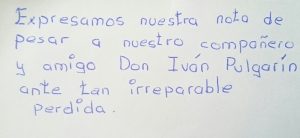 Expresamos nuestra nota de
pesar a nuestro compañero
y amigo Don Iván Pulgarín
ante tan irreparable
perdida.